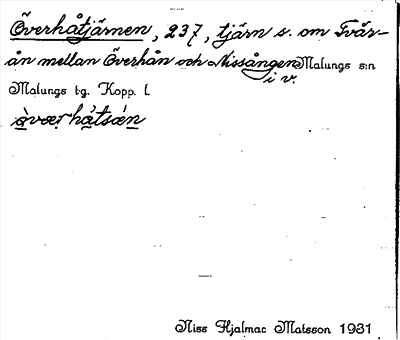 Överhåtjärnen, 237, tjärn s. om Tvår-
ån mellan Överhån och Nissången Malungs s:n
i v.
Malungs tg. Kopp. l.
övœrhåtsæ̀n
Niss Hjalmar Matsson 1931